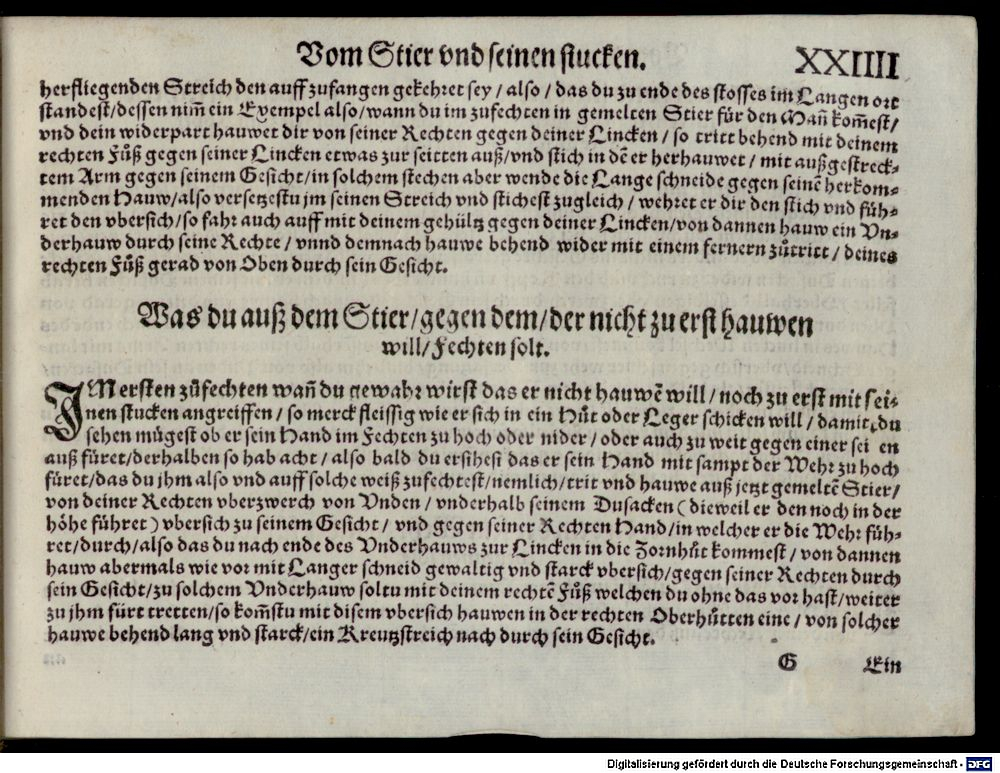 Vom Stier vnd seinen stucken.
XXIIII
herfliegenden Streich den auff zufangen gekehret sey / also / das du zu ende des stosses im Langen ort
standest / dessen nim̃ ein Exempel also / wann du im zufechten in gemelten Stier für den Mañ kom̃est /
vnd dein widerpart hauwet dir von seiner Rechten gegen deiner Lincken / so tritt behend mit deinem
rechten Fůß gegen seiner Lincken etwas zur seitten auß / vnd stich in dẽ er herhauwet / mit außgestreck⸗
tem Arm gegen seinem Gesicht / in solchem stechen aber wende die Lange schneide gegen seinẽ herkom⸗
menden Hauw / also versetzestu jm seinen Streich vnd stichest zugleich / wehret er dir den stich vnd füh⸗
ret den vbersich / so fahr auch auff mit deinem gehültz gegen deiner Lincken / von dannen hauw ein Vn⸗
derhauw durch seine Rechte / vnnd demnach hauwe behend wider mit einem fernern zůtritt / deines
rechten Fůß gerad von Oben durch sein Gesicht.
Was du auß dem Stier / gegen dem / der nicht zu erst hauwen
will / Fechten solt.
IM ersten zůfechten wañ du gewahr wirst das er nicht hauwẽ will / noch zu erst mit sei⸗
nen stucken angreiffen / so merck fleissig wie er sich in ein Hůt oder Leger schicken will / damit du
sehen mügest ob er sein Hand im Fechten zu hoch oder nider / oder auch zu weit gegen einer sei en
auß füret / derhalben so hab acht / also bald du ersihest das er sein Hand mit sampt der Wehr zu hoch
füret / das du jhm also vnd auff solche weiß zufechtest / nemlich / trit vnd hauwe auß jetzt gemeltẽ Stier /
von deiner Rechten vberzwerch von Vnden / vnderhalb seinem Dusacken ( dieweil er den noch in der
höhe führet ) vbersich zu seinem Gesicht / vnd gegen seiner Rechten Hand / in welcher er die Wehr füh⸗
ret / durch / also das du nach ende des Vnderhauws zur Lincken in die Zornhůt kommest / von dannen
hauw abermals wie vor mit Langer schneid gewaltig vnd starck vbersich / gegen seiner Rechten durch
sein Gesicht / zu solchem Vnderhauw soltu mit deinem rechtẽ Fůß welchen du ohne das vor hast / weiter
zu jhm fürt tretten / so kom̃stu mit disem vbersich hauwen in der rechten Oberhůtten eine / von solcher
hauwe behend lang vnd starck / ein Kreutzstreich nach durch sein Gesicht.
G
Ein
Digitalisierung gefördert durch die Deutsche Forschungsgemeinschaft - DFG